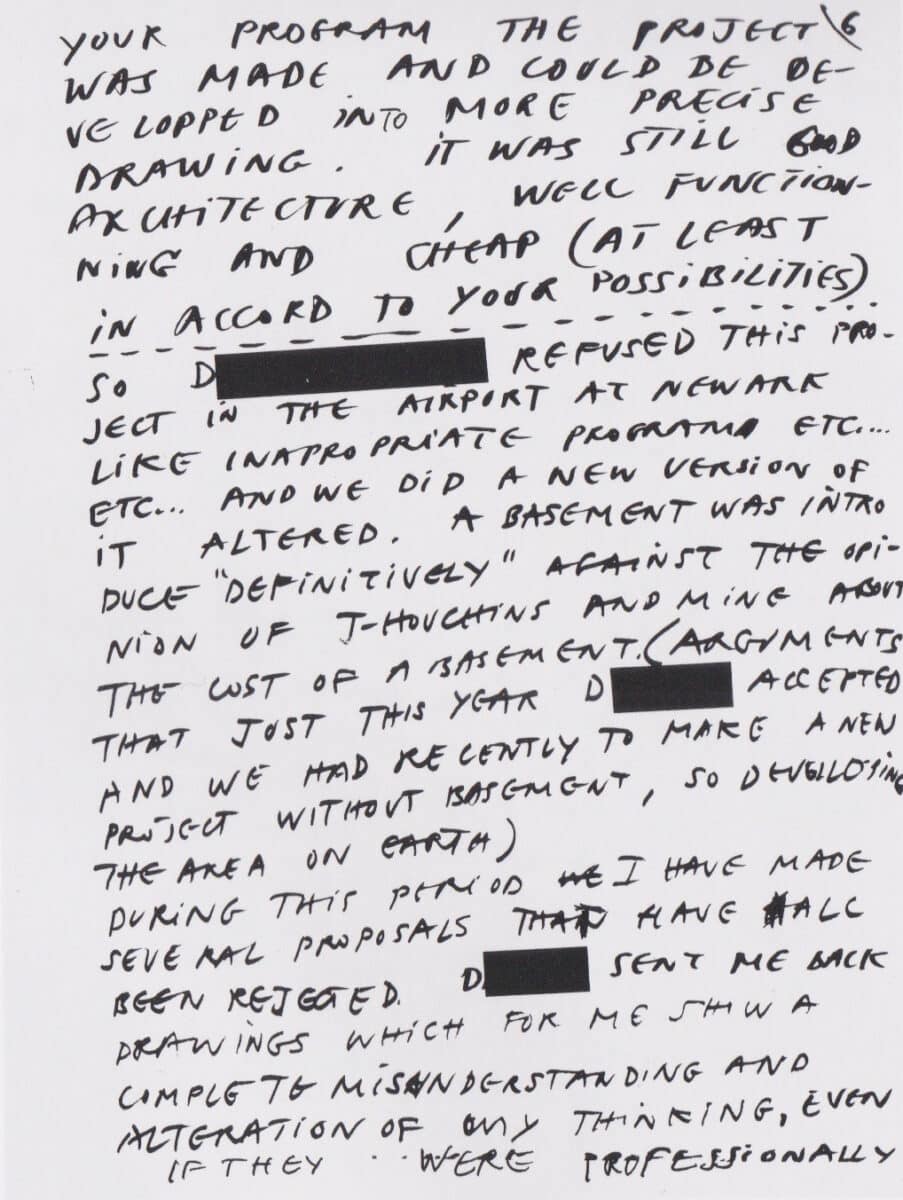 YOUR PROGRAM THE PROJECT \6
WAS MADE AND COULD BE DE-
VELOPPED INTO MORE PRECISE
DRAWING. IT WAS STILL GOOD
ARCHITECTURE, WELL FUNCTION-
NING AND CHEAP (AT LEAST
IN ACCORD TO YOUR POSSIBILITIES)
SO D REFUSED THIS PRO-
JECT IN THE AIRPORT AT NEWARK
LIKE INAPROPRIATE PROGRAM ETC....
ETC... AND WE DID A NEW VERSION OF
IT ALTERED. A BASEMENT WAS INTRO
DUCE "DEFINITIVELY" AGAINST THE OPI-
NION OF J-HOUCHINS AND MINE ABOUT
THE COST OF A BASEMENT. (ARGUMENTS
THAT JUST THIS YEAR D ACCEPTED
AND WE HAD RECENTLY TO MAKE A NEW
PROJECT WITHOUT BASEMENT, SO
THE AREA ON EARTH)
DURING THIS PERIOD WE I HAVE MADE
SEVERAL PROPOSALS THAT HAVE ALL
BEEN REJECTED. D SENT ME BACK
DRAWINGS WHICH FOR ME SHOW A
COMPLETE MISUNDERSTANDING AND
ALTERATION OF MY THINKING, EVEN
IF THEY WERE PROFESSIONALLY